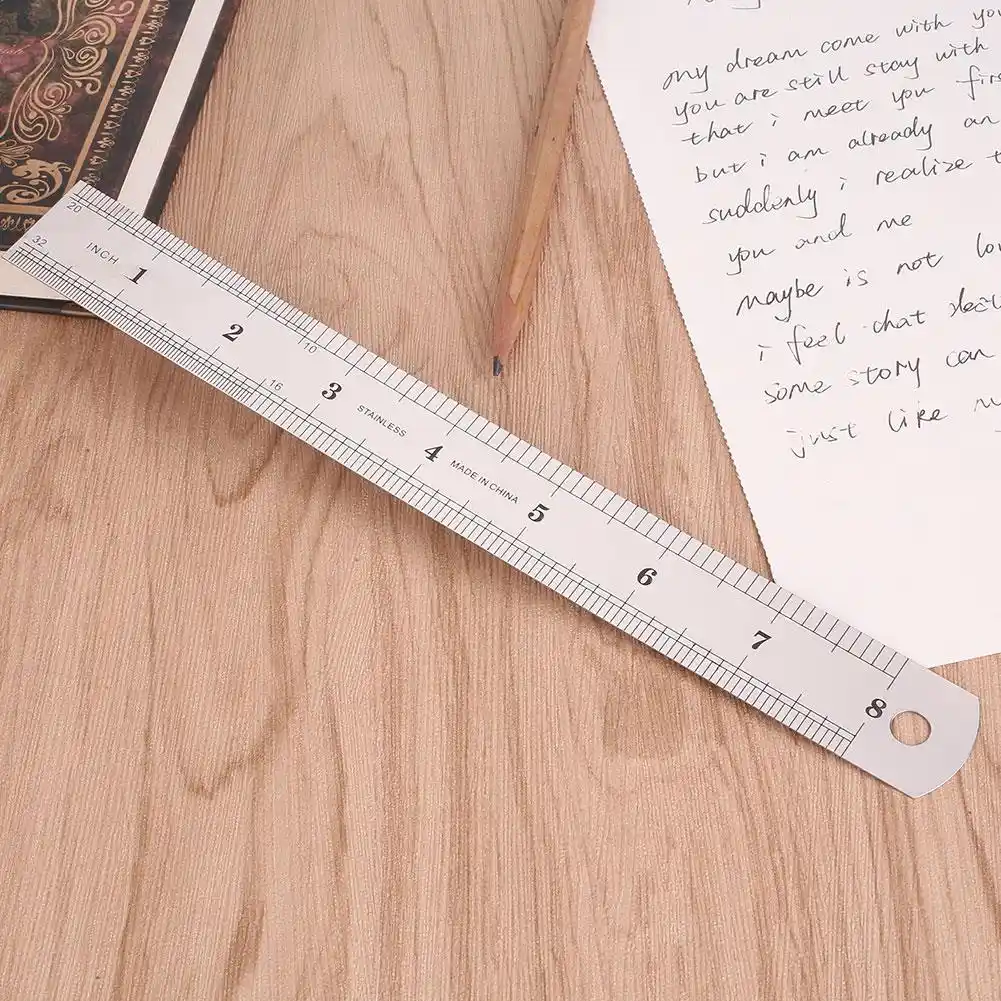 20
32
INCH
1
2
10
16
3
STAINLESS
4
MADE IN CHINA
5
6
7
8
my dream come with you
you are still stay with
that i meet you firs
but i am already an
suddenly i realize t
you and me
maybe is not lo
i feel chat
some story can
just like